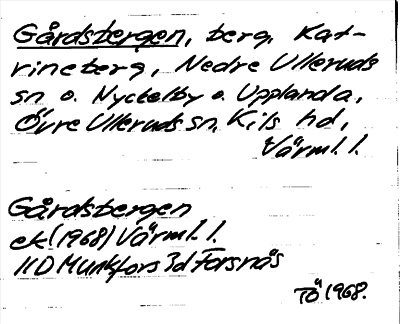 Gårdsbergen, berg, Kat-
rineberg, Nedre Ulleruds
sn o. Nyckelby o. Upplanda,
Övre Ulleruds sn, Kils hd,
Värml. l.
Gårdsbergen
ek (1968) Värml. l.
11D Munkfors 3d Forsnäs
TÖ 1968.